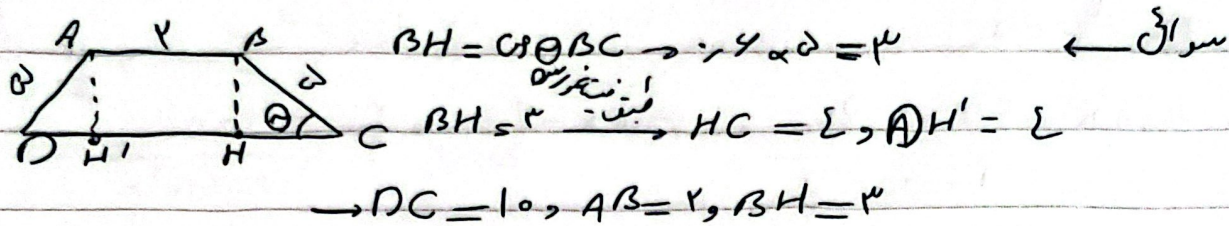 سوال ←
A ۲ B
۵ ۵ θ
D H' H C
BH = cosθ BC → ۰/۶ × ۵ = ۳
BH = ۳ طبق فیثاغورس → HC = ٤ , ⒶH' = ٤
→ DC = ۱۰ , AB = ۲ , BH = ۳